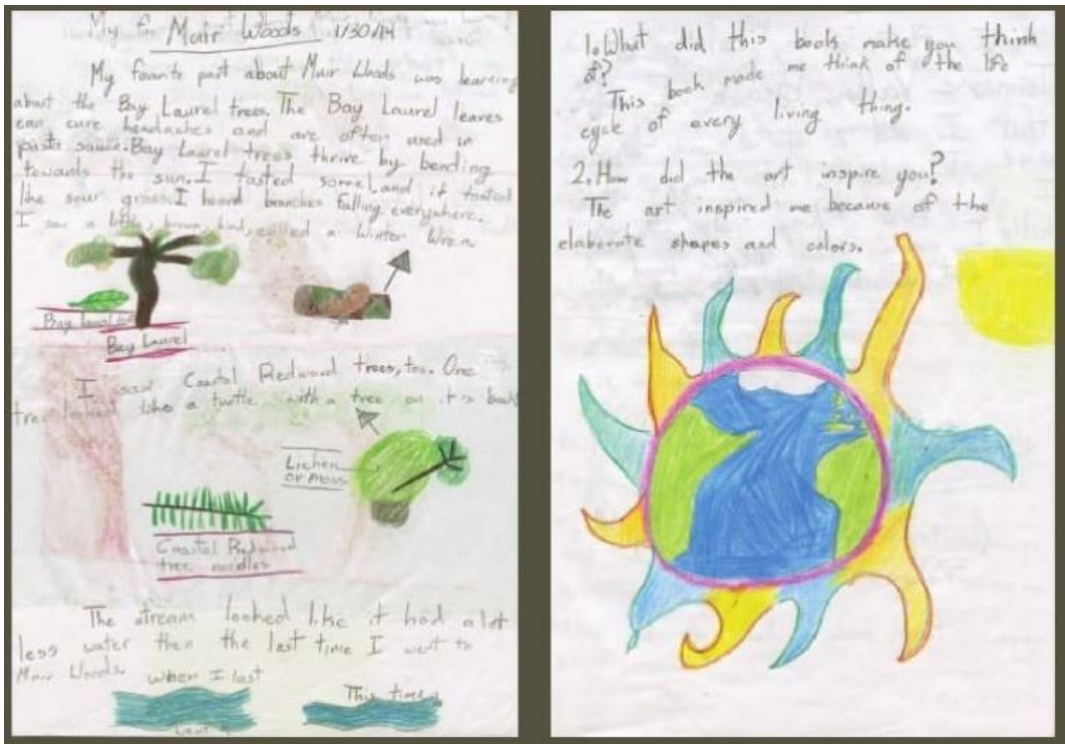 Muir Woods 1/30/14
My favorite part about Muir Woods was learning
about the Bay Laurel trees. The Bay Laurel leaves
can cure headaches and are often used in
pasta sauce. Bay Laurel trees thrive by bending
towards the sun. I tasted sorrel, and it tasted
like sour grass. I heard branches falling everywhere.
I saw a little, brown bird, called a Winter Wren.
Bay laurel
Bay Laurel
I saw Coastal Redwood trees, too. One
tree looked like a turtle with a tree on it's back
Lichen
or Moss
Coastal Redwood
tree needles
The stream looked like it had a lot
less water then the last time I went to
Muir Woods.
when I last
went
This time
1. What did this book make you think
of?
This book made me think of the life
cycle of every living thing.
2. How did the art inspire you?
The art inspired me because of the
elaborate shapes and colors.